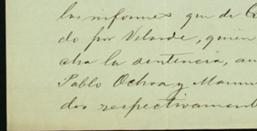 los informes que de
do por Velarde, quien
cha la sentencia, au
Pablo Ochoa y Manu
dos respectivament